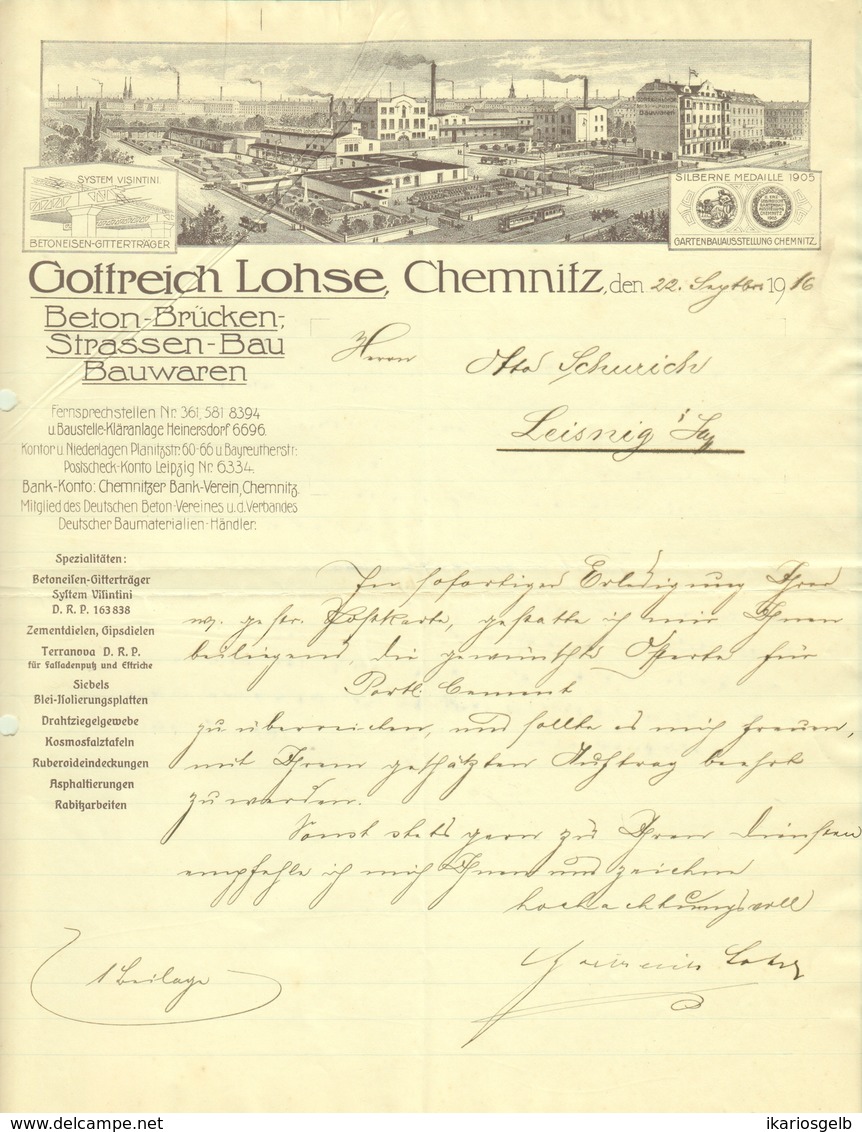 Bauwaren
SYSTEM VISINTINI.
BETONEISEN-GITTERTRÄGER
SILBERNE MEDAILLE 1905
GARTENBAUAUSSTELLUNG CHEMNITZ.
Gottreich Lohse, Chemnitz, den 22. Septbr. 1916
Beton-Brücken-,
Strassen-Bau
Bauwaren
Herrn
Otto Schurich
Leisnig i/Sa
Fernsprechstellen Nr. 361, 581 8394
u. Baustelle-Kläranlage Heinersdorf 6696.
Kontor u. Niederlagen Planitzstr. 60-66 u. Bayreutherstr.
Postscheck-Konto Leipzig Nr. 6334.
Bank-Konto: Chemnitzer Bank-Verein, Chemnitz.
Mitglied des Deutschen Beton-Vereines u. d. Verbandes
Deutscher Baumaterialien-Händler.
Spezialitäten:
Betoneisen-Gitterträger
System Visintini
D. R. P. 163 838
Zementdielen, Gipsdielen
Terranova D. R. P.
für Fassadenputz und Estriche
Siebels
Blei-Isolierungsplatten
Drahtziegelgewebe
Kosmosfalztafeln
Ruberoideindeckungen
Asphaltierungen
Rabitzarbeiten
In sofortiger Erledigung Ihrer
w. gestr. Postkarte, gestatte ich mir Ihnen
beiliegend, die gewünschte Offerte für
Portl. Cement
zu überreichen, und sollte es mich freuen,
mit Ihrem geschätzten Auftrag beehrt
zu werden.
Sonst stets gern zu Ihren Diensten
empfehle ich mich Ihnen und zeichne
hochachtungsvoll
Gottreich Lohse
1 Beilage
delcampe.net
ikariosgelb